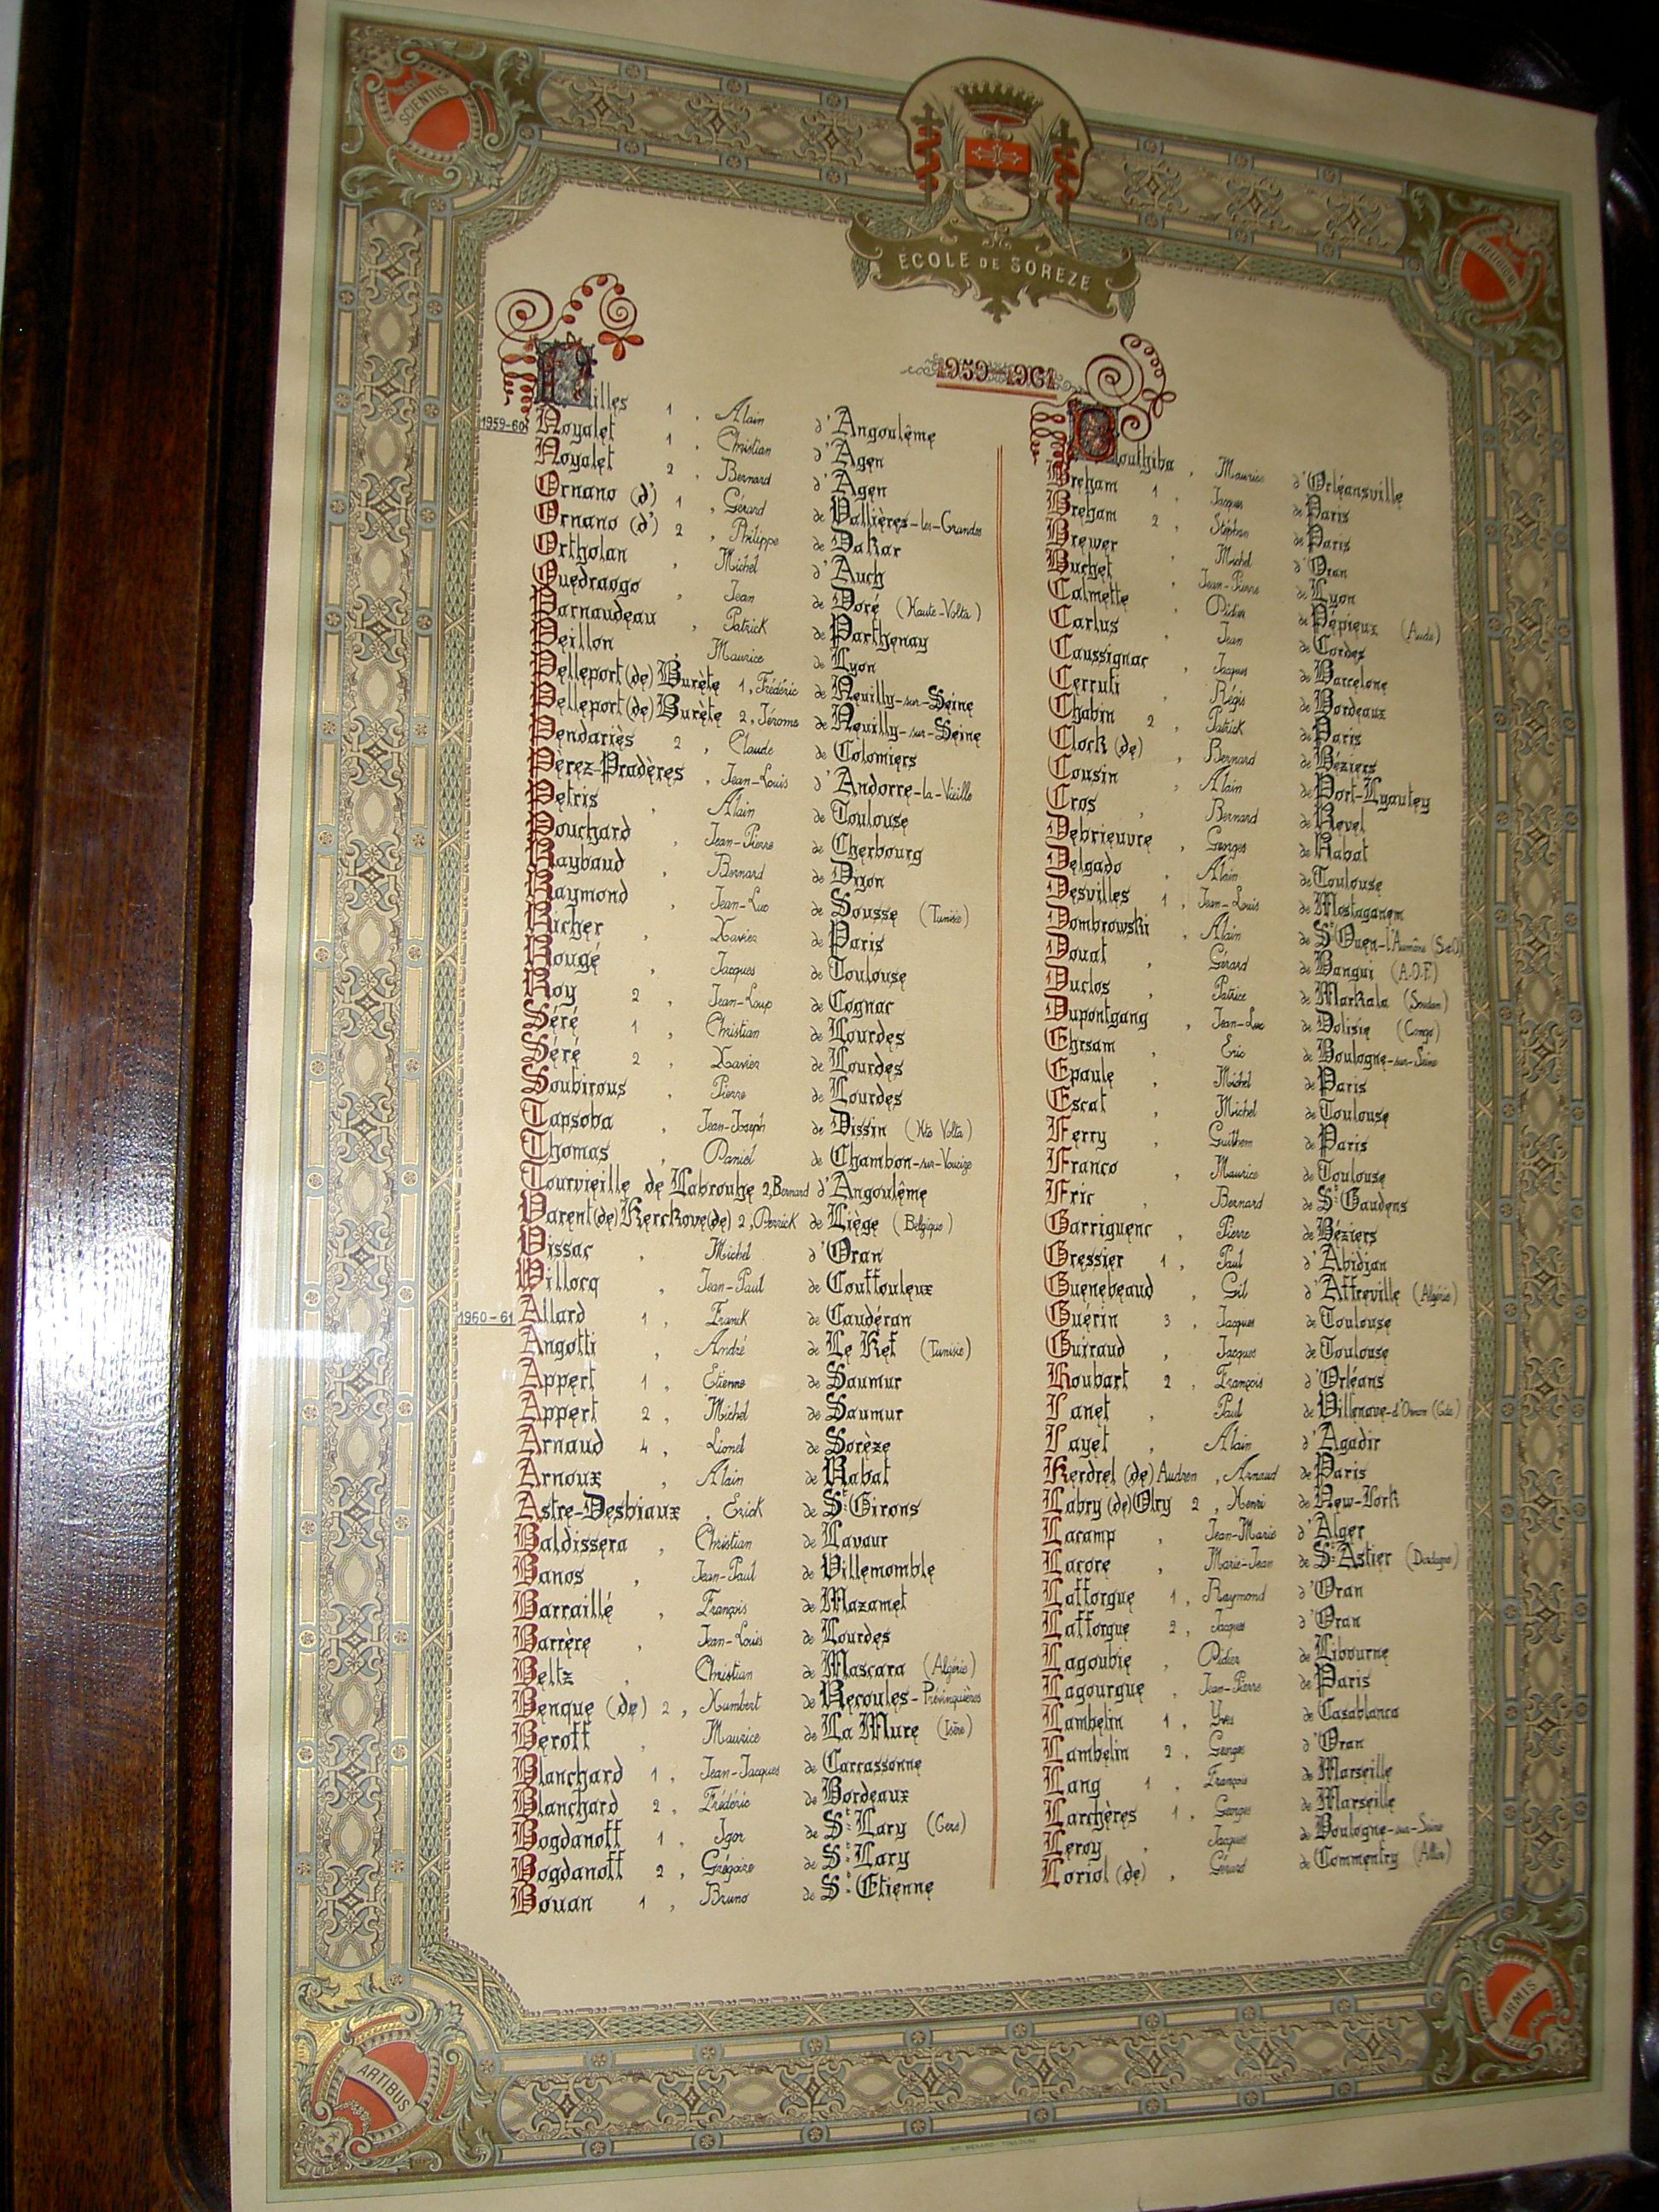 SCIENTIIS
RELIGIONI
ÉCOLE DE SORÈZE
1959-1961
illes 1, Alain d'Angoulême
1959-60 Noyalet 1, Christian d'Agen
Noyalet 2, Bernard d'Agen
Ornano (d') 1, Gérard de Vallières-les-Grandes
Ornano (d') 2, Philippe de Dakar
Ortholan, Michel d'Auch
Ouedraogo, Jean de Doré (Haute-Volta)
Parnaudeau, Patrick de Parthenay
Peillon, Maurice de Lyon
Pelleport (de) Burète 1, Frédéric de Neuilly-sur-Seine
Pelleport (de) Burète 2, Jérome de Neuilly-sur-Seine
Pendariès 2, Claude de Colomiers
Perez-Pradères, Jean-Louis d'Andorre-la-Vieille
Petris, Alain de Toulouse
Pouchard, Jean-Pierre de Cherbourg
Raybaud, Bernard de Dijon
Raymond, Jean-Luc de Sousse (Tunisie)
Richer, Xavier de Paris
Rougé, Jacques de Toulouse
Roy 2, Jean-Loup de Cognac
Séré 1, Christian de Lourdes
Séré 2, Xavier de Lourdes
Soubirous, Pierre de Lourdes
Tapsoba, Jean-Joseph de Dissin (Hte Volta)
Thomas, Daniel de Chambon-sur-Voueize
Tourvieille de Labrouhe 2, Bernard d'Angoulême
Parent (de) Kerckove (de) 2, Perrick de Liège (Belgique)
Vissac, Michel d'Oran
Willocq, Jean-Paul de Couffouleux
1960-61 Allard 1, Franck de Caudéran
Angotti, André de Le Kef (Tunisie)
Appert 1, Etienne de Saumur
Appert 2, Michel de Saumur
Arnaud 4, Lionel de Sorèze
Arnoux, Alain de Rabat
Astre-Desbiaux, Erick de St Girons
Baldissera, Christian de Lavaur
Banos, Jean-Paul de Villemomble
Barraillé, François de Mazamet
Barrère, Jean-Louis de Lourdes
Beltz, Christian de Mascara (Algérie)
Benque (de) 2, Humbert de Recoules-Prévinquières
Beroff, Maurice de La Mure (Isère)
Blanchard 1, Jean-Jacques de Carcassonne
Blanchard 2, Frédéric de Bordeaux
Bogdanoff 1, Igor de St Lary (Gers)
Bogdanoff 2, Grégoire de St Lary
Bouan 1, Bruno de St Etienne
Bouthiba, Maurice d'Orléansville
Breham 1, Jacques de Paris
Breham 2, Stéphan de Paris
Brewer, Michel d'Oran
Buchet, Jean-Pierre de Lyon
Calmette, Didier de Pépieux (Aude)
Carlus, Jean de Cordes
Caussignac, Jacques de Barcelone
Cerruti, Régis de Bordeaux
Chabin 2, Patrick de Paris
Clock (de), Bernard de Béziers
Cousin, Alain de Port-Lyautey
Cros, Bernard de Revel
Debrieuvre, Georges de Rabat
Delgado, Alain de Toulouse
Desvilles 1, Jean-Louis de Mostaganem
Dombrowski, Alain de St Ouen-l'Aumône (S.et O)
Douat, Gérard de Bangui (A.O.F)
Duclos, Patrice de Markala (Soudan)
Dupontgang, Jean-Luc de Dolisie (Congo)
Ehrsam, Eric de Boulogne-sur-Seine
Epaule, Michel de Paris
Escat, Michel de Toulouse
Ferry, Guilhem de Paris
Franco, Maurice de Toulouse
Fric, Bernard de St Gaudens
Garriguenc, Pierre de Béziers
Gressier 1, Paul d'Abidjan
Guenebeaud, Gil d'Affreville (Algérie)
Guérin 3, Jacques de Toulouse
Guiraud, Jacques de Toulouse
Houbart 2, François d'Orléans
Janet, Paul de Villenave-d'Ornon (Gde)
Jayet, Alain d'Agadir
Kerdrel (de) Audren, Arnaud de Paris
Labry (de) Olry 2, Henri de New-York
Lacamp, Jean-Marie d'Alger
Lacore, Marie-Jean de St Astier (Dordogne)
Lafforgue 1, Raymond d'Oran
Lafforgue 2, Jacques d'Oran
Lagoubie, Didier de Libourne
Lagourgue, Jean-Pierre de Paris
Lambelin 1, Yves de Casablanca
Lambelin 2, Georges d'Oran
Lang 1, François de Marseille
Larchères 1, Georges de Marseille
Leroy, Jacques de Boulogne-sur-Seine
Loriol (de), Gérard de Commentry (Allier)
ARTIBUS
ARMIS